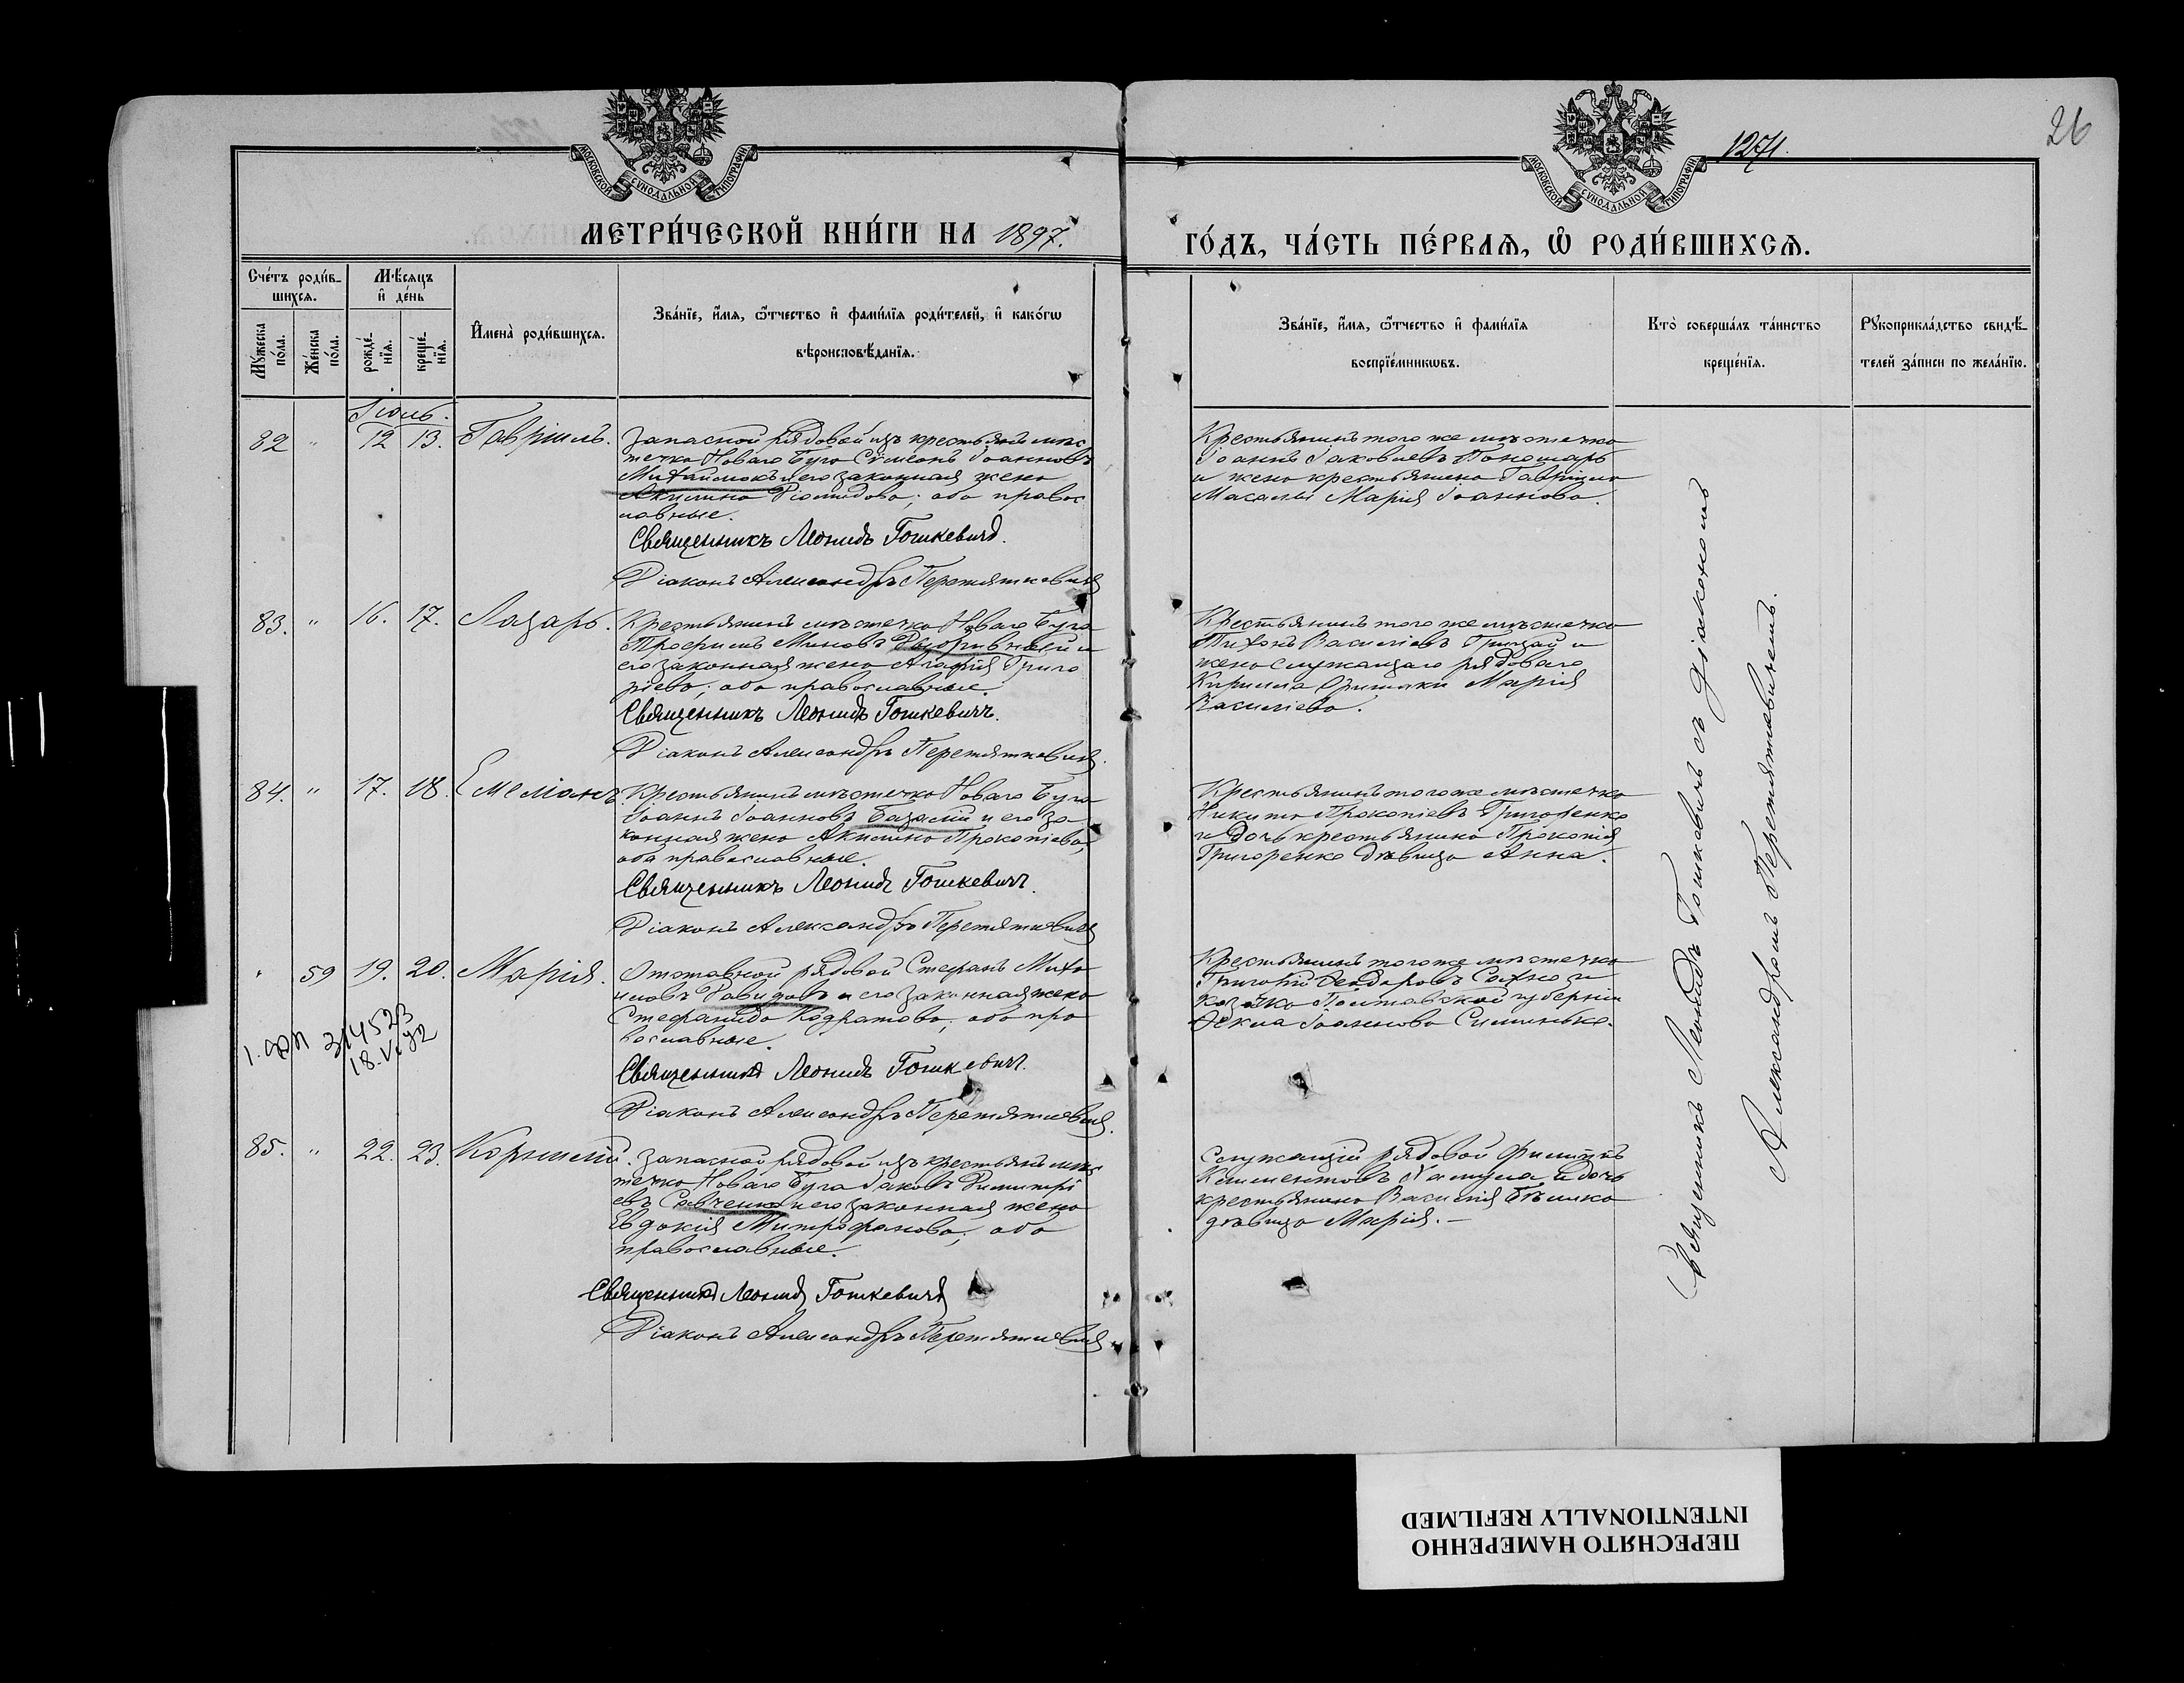 26
1271.
МОСКОВСКОЙ СУНОДАЛЬНОЙ ТИПОГРАФІИ
МОСКОВСКОЙ СУНОДАЛЬНОЙ ТИПОГРАФІИ
МЕТРИ́ЧЕСКОЙ КНИ́ГИ НА 1897.
ГО́ДЪ, ЧА́СТЬ ПЕ́РВАѦ, Ѽ РОДИ́ВШИХСѦ.
Сче́тъ роди́в-
шихсѧ.
Мꙋ́жеска
по́ла.
Же́нска
по́ла.
Мѣ́сѧцъ
и҆ де́нь
рожде́-
нїѧ.
креще́-
нїѧ.
И҆мена̀ роди́вшихсѧ.
Зва́нїе, и҆́мѧ, ѻ҆́тчество и҆ фами́лїѧ роди́телей, и҆ како́гѡ
вѣроисповѣ́данїѧ.
Зва́нїе, и҆́мѧ, ѻ҆́тчество и҆ фами́лїѧ
воспрїе́мникѡвъ.
Кто̀ соверша́лъ та́инство
креще́нїѧ.
Рꙋкоприкла́дство свидѣ́-
телей за́писи по жела́нїю.
Іюль.
82 " 12 13. Гавріилъ.
Запасной рядовой изъ крестьянъ мѣс
течка Новаго Буга Сѵмеонъ Іоанновъ
Михайлюкъ и его законная жена
Акилина Діомидова; оба правос
лавные.
Священникъ Леонидъ Гошкевичъ.
Діаконъ Александръ Перетятковичъ
Крестьянинъ того же мѣстечка
Іоаннъ Іаковлевъ Пономарь
и жена крестьянина Гавріила
Масалы Марія Іоаннова.
83. " 16. 17. Лазарь.
Крестьянинъ мѣстечка Новаго Буга
Трофимъ Миновъ и
его законная жена Агафія Григо
ріева; оба православные.
Священникъ Леонидъ Гошкевичъ.
Діаконъ Александръ Перетятковичъ.
Крестьянинъ того же мѣстечка
Тихонъ Василіевъ Грицай и
жена служащаго рядоваго
Кирилла Марія
Василіева.
84. " 17. 18. Емеліанъ.
Крестьянинъ мѣстечка Новаго Буга
Іоаннъ Іоанновъ Базалій и его за
конная жена Акилина Прокопіева;
оба православные.
Священникъ Леонидъ Гошкевичъ.
Діаконъ Александръ Перетятковичъ
Крестьянинъ того же мѣстечка
Никита Прокопіевъ Григоренко
и дочь крестьянина Прокопія
Григоренко дѣвица Анна.
" 59 19. 20. Марія.
Отставной рядовой Стефанъ Миха
иловъ Давидовъ и его законная жена
Стефанида Кодратова; оба пра
вославные.
Священникъ Леонидъ Гошкевичъ.
Діаконъ Александръ Перетятковичъ.
Крестьянинъ того же мѣстечка
Григорій Ѳеодоровъ Сахно и
козачка Полтавской губерніи
Ѳекла Іоаннова
314523
18.V.92
85. " 22. 23. Корнилій.
Запасной рядовой изъ крестьянъ мѣс
течка Новаго Буга Іаковъ Димитрі
евъ Савченко и его законная жена
Евдокія Митрофанова; оба
православные.
Священникъ Леонидъ Гошкевичъ
Діаконъ Александръ Перетятковичъ
Служащій рядовой Филиппъ
Климентовъ и дочь
крестьянина Василія Бѣлика
дѣвица Марія.
Священникъ Леонидъ Гошкевичъ съ діакономъ
Александромъ Перетятковичемъ.
ПЕРЕСНЯТО НАМЕРЕННО
INTENTIONALLY REFILMED